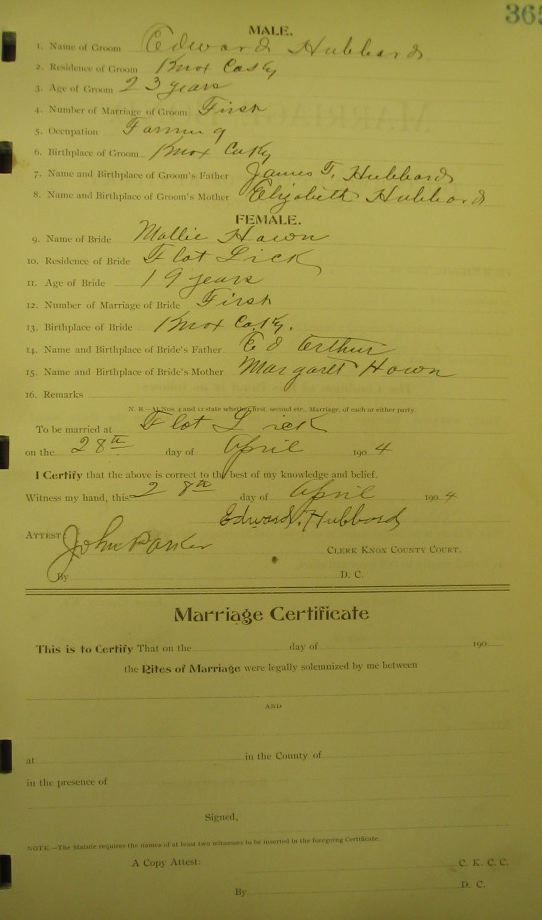 365
MALE.
1. Name of Groom Edward Hubbard
2. Residence of Groom Knox Co Ky
3. Age of Groom 23 years
4. Number of Marriage of Groom First
5. Occupation Farming
6. Birthplace of Groom Knox Co Ky
7. Name and Birthplace of Groom's Father James T. Hubbard
8. Name and Birthplace of Groom's Mother Elizabeth Hubbard
FEMALE.
9. Name of Bride Mollie Hown
10. Residence of Bride Flat Lick
11. Age of Bride 19 years
12. Number of Marriage of Bride First
13. Birthplace of Bride Knox Co. Ky.
14. Name and Birthplace of Bride's Father Ed Arthur
15. Name and Birthplace of Bride's Mother Margaret Hown
16. Remarks
N. B.—At Nos. 4 and 12 state whether first, second etc., Marriage, of each or either party.
To be married at Flat Lick
on the 28th day of April 1904
I Certify that the above is correct to the best of my knowledge and belief.
Witness my hand, this 28th day of April 1904
Edward Hubbard
ATTEST John Parker
CLERK KNOX COUNTY COURT.
By D. C.
Marriage Certificate
This is to Certify That on the day of 190
the Rites of Marriage were legally solemnized by me between
AND
at in the County of
in the presence of
Signed,
NOTE.—The Statute requires the names of at least two witnesses to be inserted in the foregoing Certificate.
A Copy Attest: C. K. C. C.
By D. C.